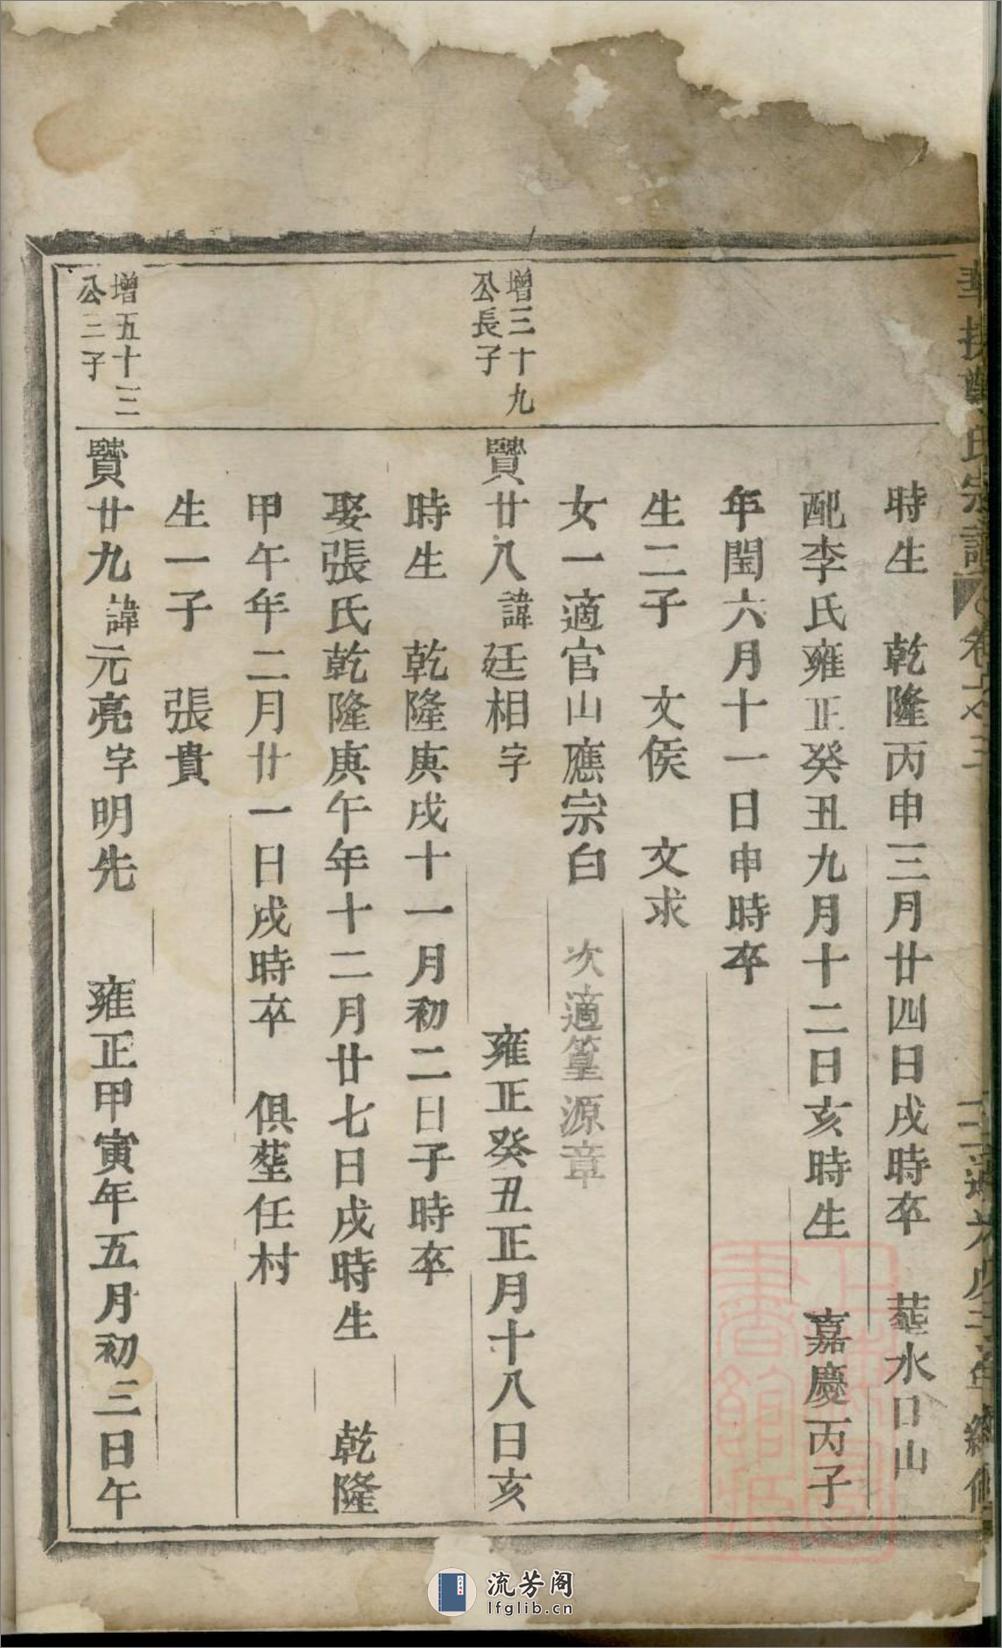 氏宗譜 卷之三
時生 乾隆丙申三月廿四日戌時卒 塟水口山
配李氏雍正癸丑九月十二日亥時生 嘉慶丙子
年閏六月十一日申時卒
生二子 文侯 文求
女一適官山應宗白 次適篁源章
增三十九
公長子
賢廿八諱廷相字 雍正癸丑正月十八日亥
時生 乾隆庚戌十一月初二日子時卒
娶張氏乾隆庚午年十二月廿七日戌時生 乾隆
甲午年二月廿一日戌時卒 俱塟任村
生一子 張貴
增五十三
公三子
賢廿九諱元亮字明先 雍正甲寅年五月初三日午
流芳阁
lfglib.cn